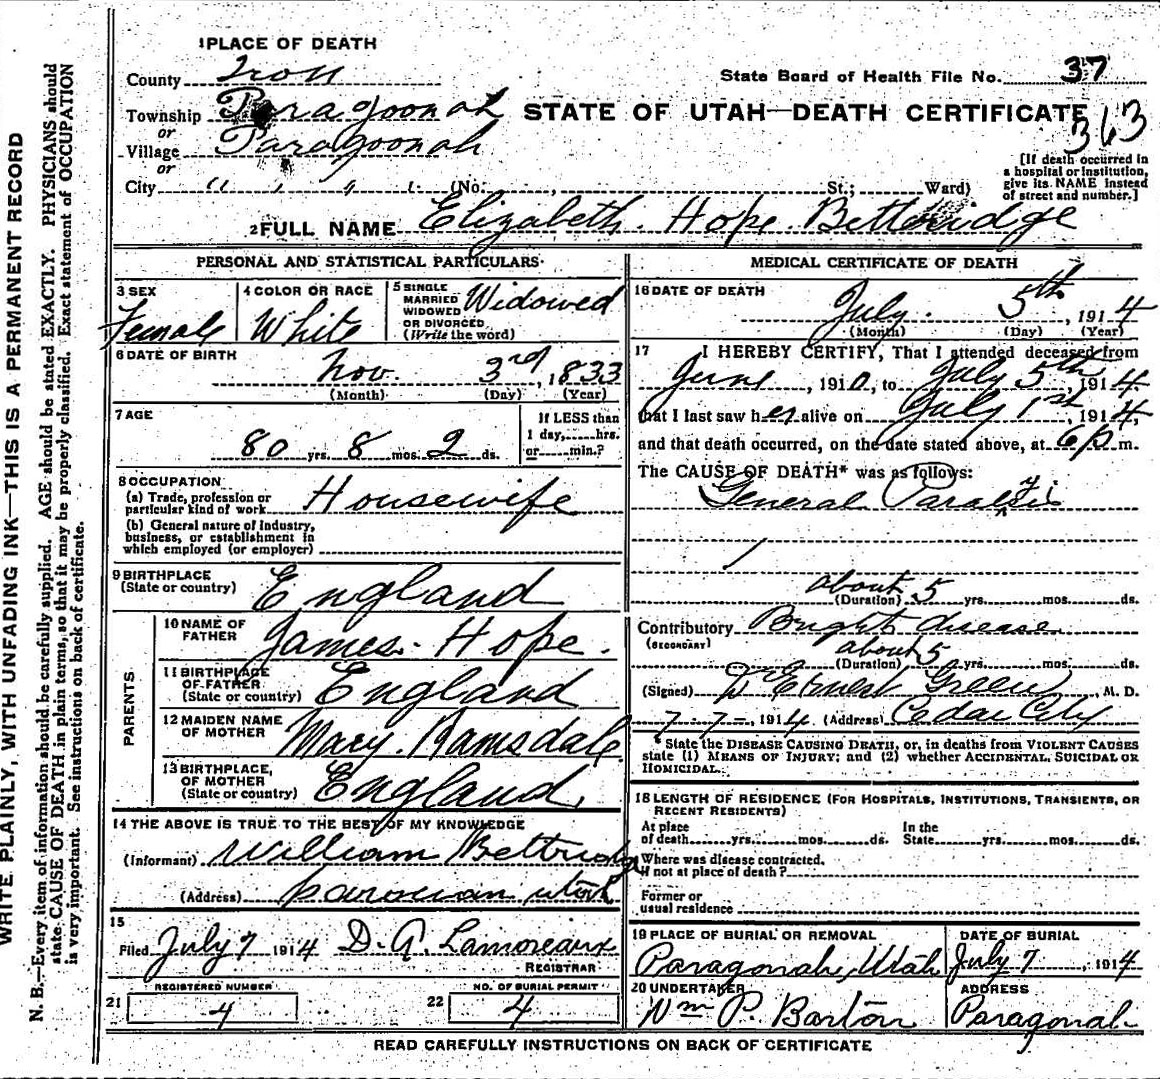 1 PLACE OF DEATH
County Iron
State Board of Health File No. 37
Township Paragoonah
STATE OF UTAH—DEATH CERTIFICATE
363
or
Village Paragoonah
or
City " " " " (No. , St.; Ward)
[If death occurred in a hospital or institution, give its NAME instead of street and number.]
2 FULL NAME Elizabeth Hope Betteridge
PERSONAL AND STATISTICAL PARTICULARS
3 SEX Female
4 COLOR OR RACE White
5 SINGLE MARRIED WIDOWED OR DIVORCED (Write the word) Widowed
6 DATE OF BIRTH
Nov. 3rd, 1833
(Month) (Day) (Year)
7 AGE
80 yrs. 8 mos. 2 ds.
If LESS than 1 day, hrs. or min.?
8 OCCUPATION
(a) Trade, profession or particular kind of work Housewife
(b) General nature of industry, business, or establishment in which employed (or employer)
9 BIRTHPLACE
(State or country) England
PARENTS
10 NAME OF FATHER James Hope.
11 BIRTHPLACE OF FATHER (State or country) England
12 MAIDEN NAME OF MOTHER Mary Ramsdale
13 BIRTHPLACE, OF MOTHER (State or country) England
14 THE ABOVE IS TRUE TO THE BEST OF MY KNOWLEDGE
(Informant) William Bettridge
(Address) parowan utah
15
Filed July 7 1914 D. A. Lamoreaux
REGISTRAR
21 REGISTERED NUMBER 4
22 NO. OF BURIAL PERMIT 4
MEDICAL CERTIFICATE OF DEATH
16 DATE OF DEATH
July. 5th, 1914
(Month) (Day) (Year)
17 I HEREBY CERTIFY, That I attended deceased from
June, 1910, to July 5th, 1914
that I last saw her alive on July 1st, 1914,
and that death occurred, on the date stated above, at 6 p m.
The CAUSE OF DEATH* was as follows:
General Paralysis
about
(Duration) 5 yrs. mos. ds.
Contributory Brights disease
(SECONDARY)
about
(Duration) 5 yrs. mos. ds.
(Signed) Dr Ernest Green, M. D.
7-7-, 1914 (Address) Cedar City
*State the DISEASE CAUSING DEATH, or, in deaths from VIOLENT CAUSES
state (1) MEANS OF INJURY; and (2) whether ACCIDENTAL, SUICIDAL OR
HOMICIDAL.
18 LENGTH OF RESIDENCE (FOR HOSPITALS, INSTITUTIONS, TRANSIENTS, OR
RECENT RESIDENTS)
At place of death yrs. mos. ds. In the State yrs. mos. ds.
Where was disease contracted.
if not at place of death?
Former or
usual residence
19 PLACE OF BURIAL OR REMOVAL
Paragonah, Utah
DATE OF BURIAL
July 7, 1914
20 UNDERTAKER
Wm P. Barton
ADDRESS
Paragonah
READ CAREFULLY INSTRUCTIONS ON BACK OF CERTIFICATE
WRITE PLAINLY, WITH UNFADING INK—THIS IS A PERMANENT RECORD
N. B.—Every item of information should be carefully supplied. AGE should be stated EXACTLY. PHYSICIANS should
state CAUSE OF DEATH in plain terms, so that it may be properly classified. Exact statement of OCCUPATION
is very important. See instructions on back of certificate.